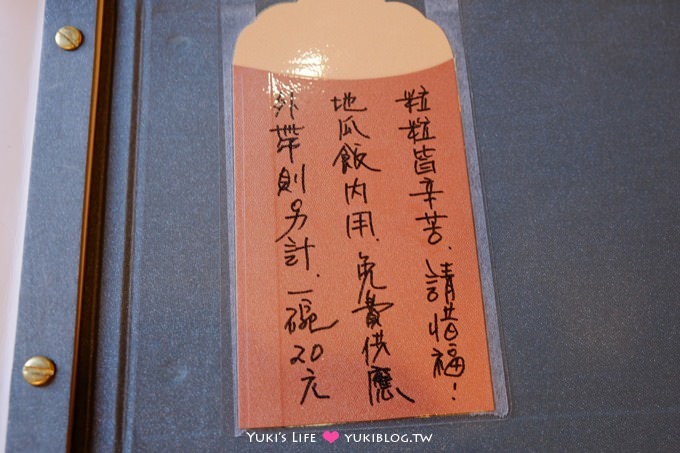 粒粒皆辛苦、請惜福！
地瓜飯內用、免費供應
外帶則另計、一碗20元
YUKI'S LIFE ♥ YUKIBLOG.TW